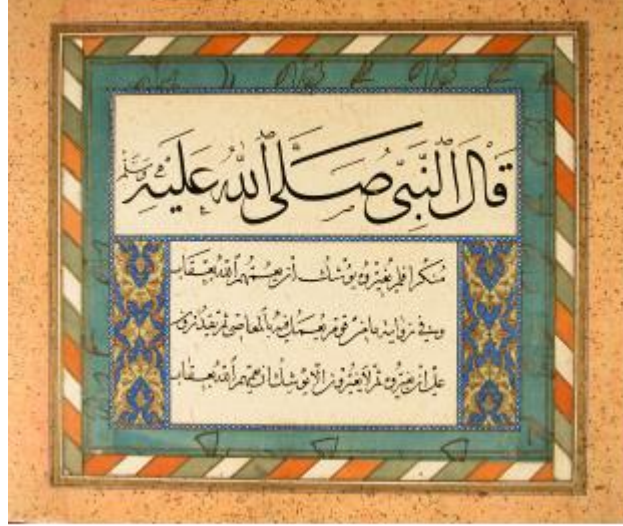 قَالَ ٱلنَّبِىُّ صَلَّى ٱللّٰهُ عَلَيْهِ وَسَلَّمَ
منكرا فلم يغيروه يوشك ان يعمهم الله بعقاب
وفى رواية ما من قوم يعمل فيهم بالمعاصى ثم يقدرون
على ان يغيروه ثم لا يغيرون الا يوشك ان يعمهم الله بعقاب